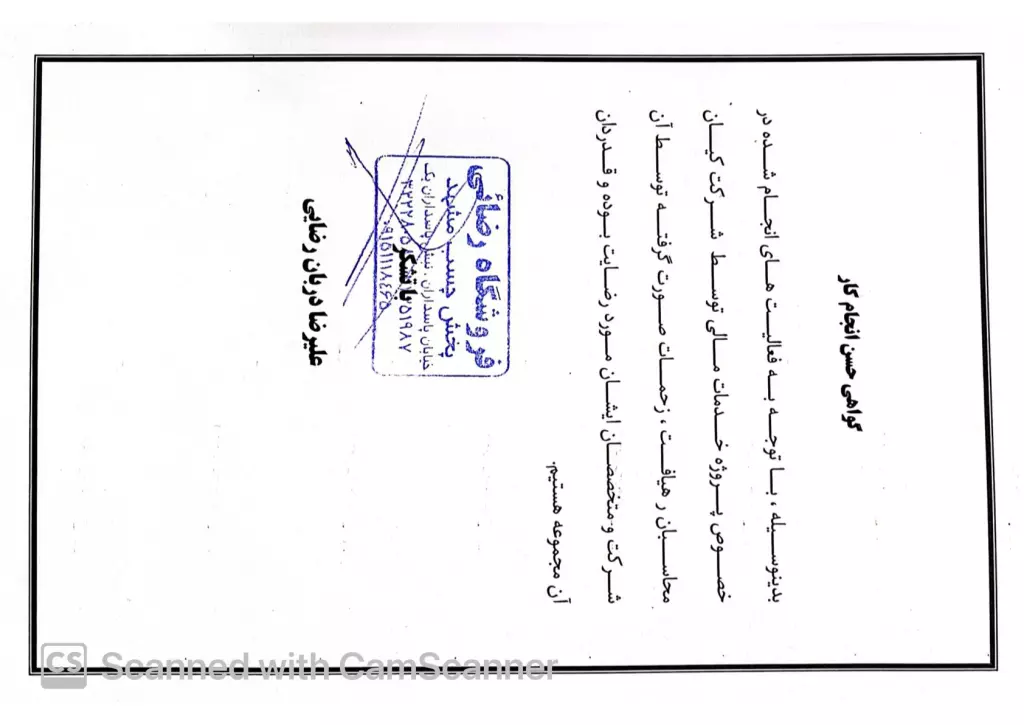 گواهی حسن انجام کار
بدینوسیله ، با توجه به فعالیت های انجام شده در
خصوص پروژه خدمات مالی توسط شرکت کیان
محاسبان رهیافت ، زحمات صورت گرفته توسط آن
شرکت و متخصصان ایشان مورد رضایت بوده و قدردان
آن مجموعه هستیم.
با تشکر
فروشگاه رضائی
پخش چسب مشهد
خیابان پاسداران ، نبش پاسداران یک
۰۹۱۵۱۱۱۸۴۶۵
علیرضا دربان رضایی
CS Scanned with CamScanner